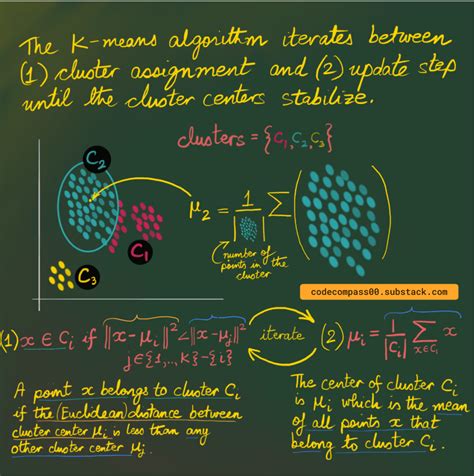 The K-means algorithm iterates between
(1) cluster assignment and (2) update step
until the cluster centers stabilize.
clusters = {C₁, C₂, C₃}
C₂
C₁
C₃
μ₂ = 1/| | ∑ ( )
number of
points in the
cluster
codecompass00.substack.com
(1) x ∈ Cᵢ if ‖x-μᵢ‖² < ‖x-μⱼ‖²
j ∈ {1,..,K}-{i}
iterate
(2) μᵢ = 1/|Cᵢ| ∑ x
x∈Cᵢ
A point x belongs to cluster Cᵢ
if the (Euclidean) distance between
cluster center μᵢ is less than any
other cluster center μⱼ.
The center of cluster Cᵢ
is μᵢ which is the mean
of all points x that
belong to cluster Cᵢ.